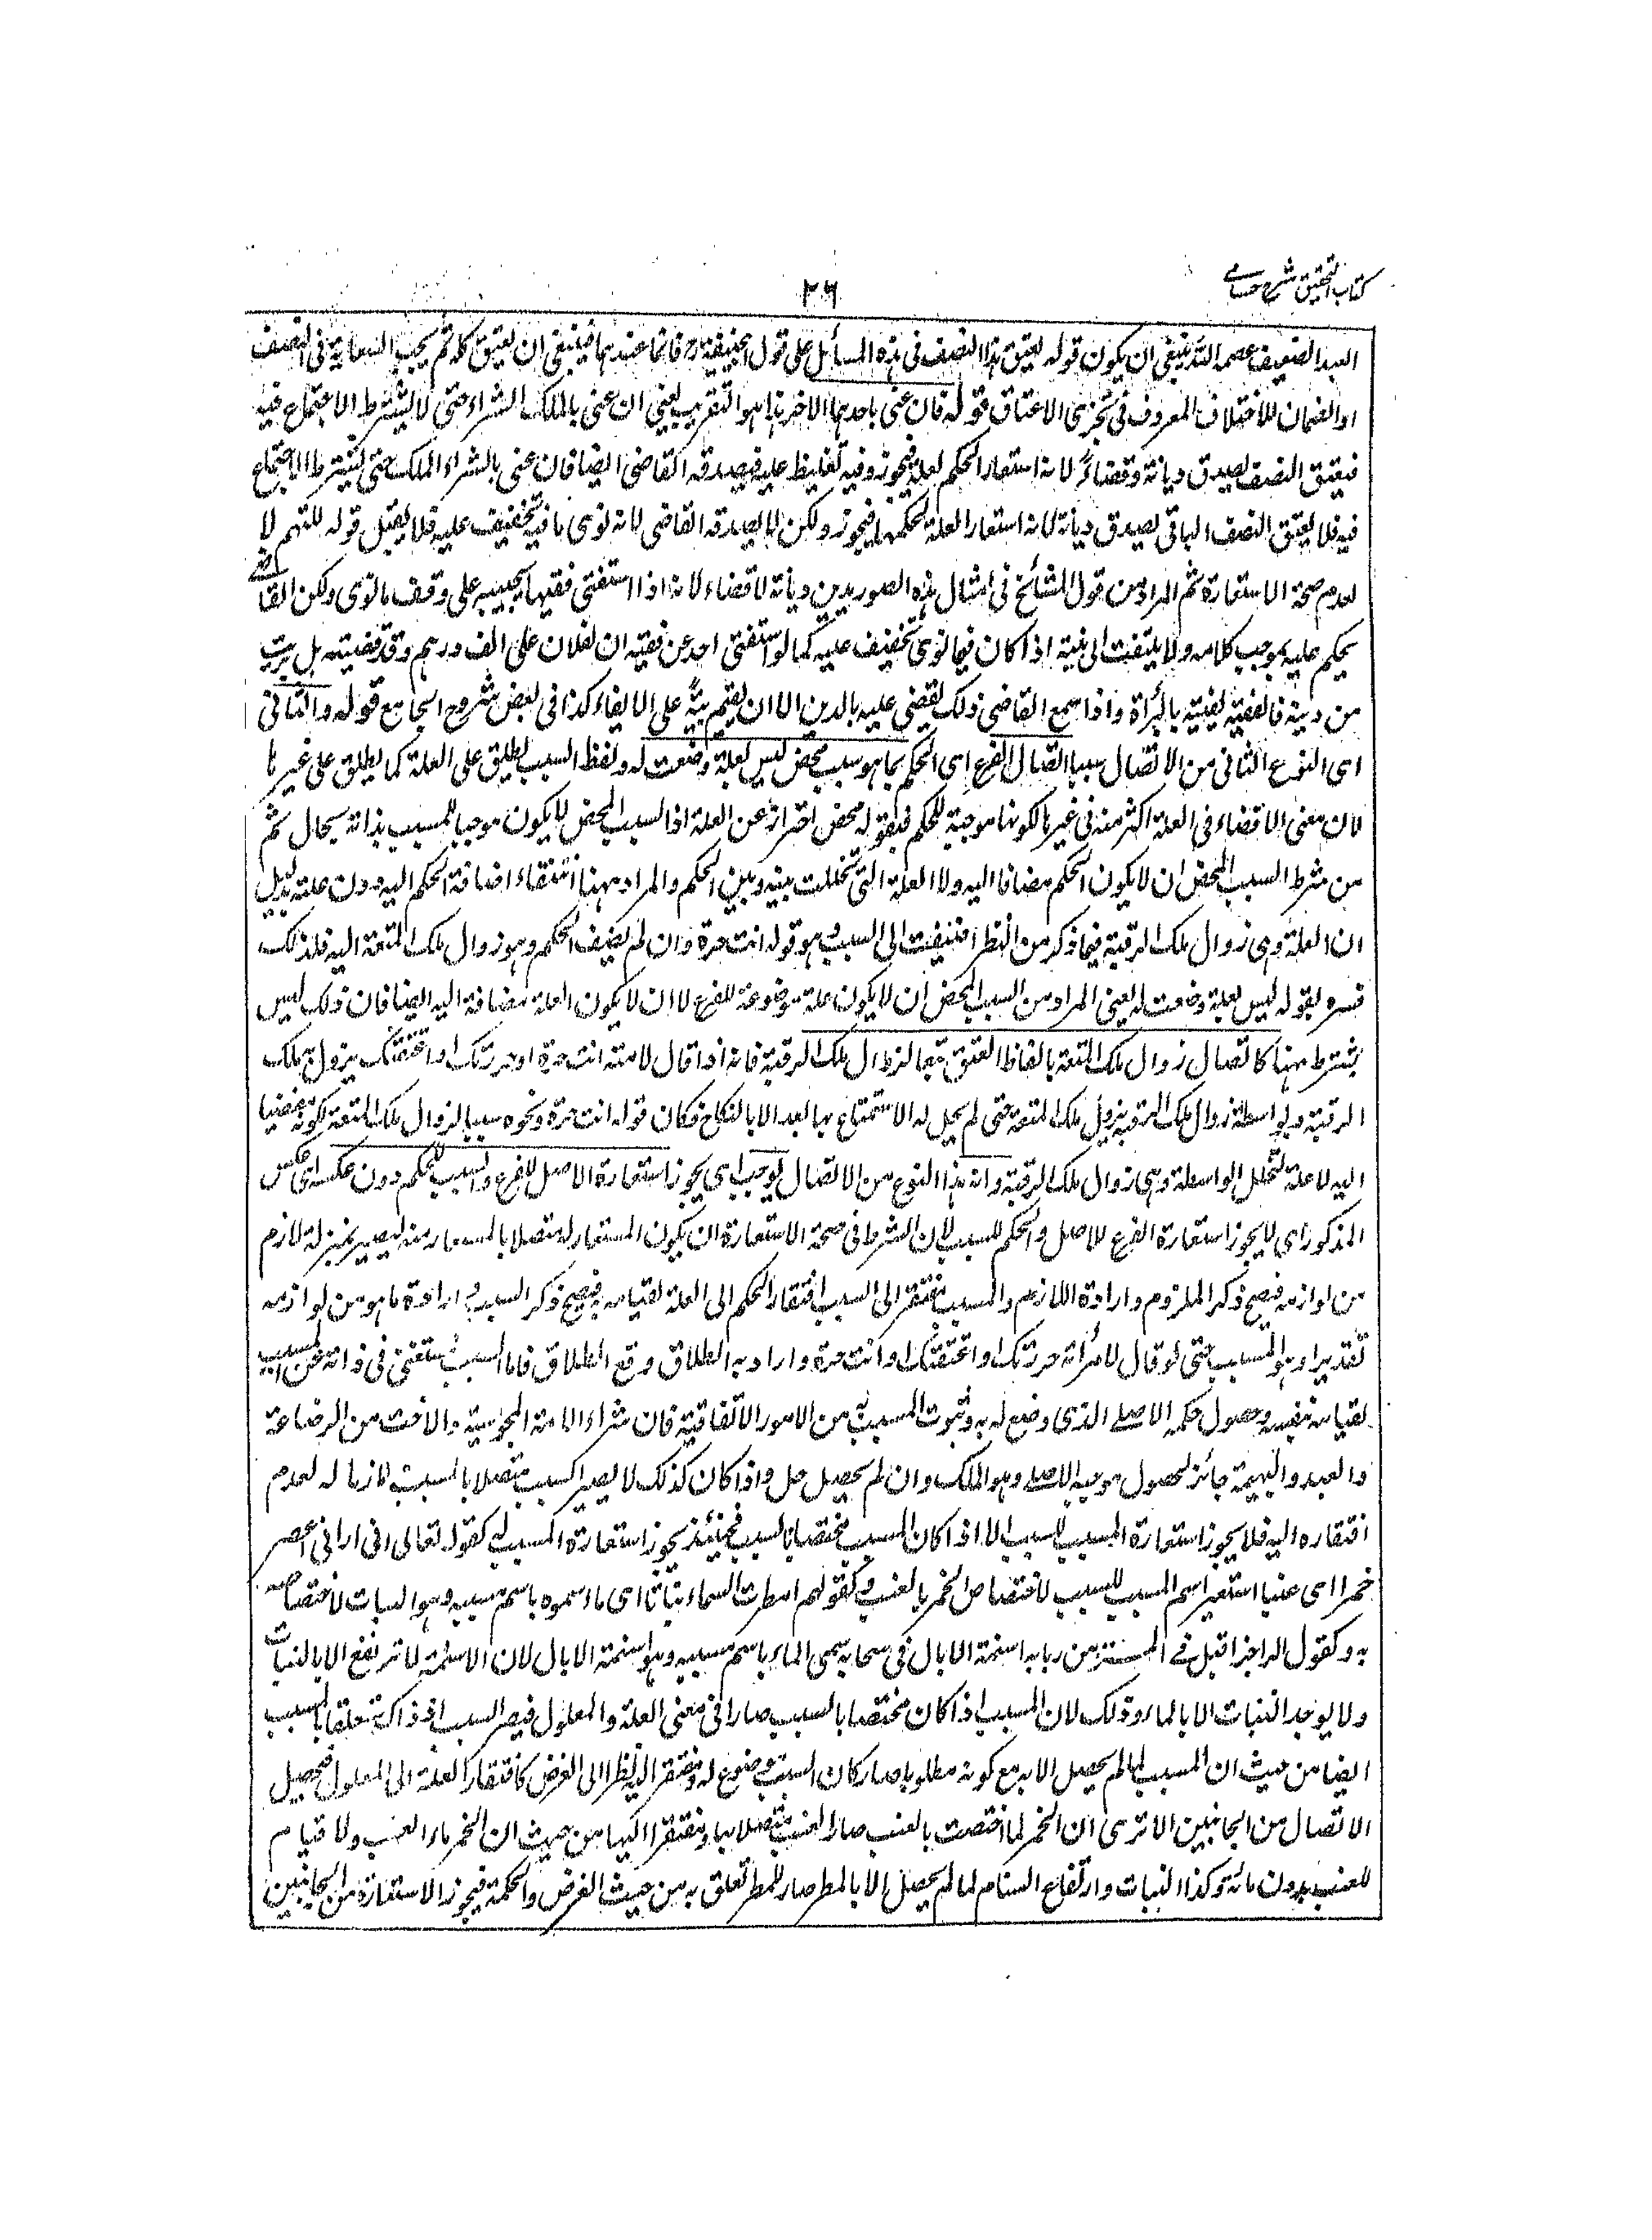 كتاب التحقيق شرح حسامي
٣٦
العبد الضعيف عصمه الله ينبغي ان يكون قوله يعتق هذا النصف في هذه المسائل على قول ابيحنيفة رح فاما عندهما فينبغي ان يعتق كله ثم يجب السعاية في النصف
او الضمان للاختلاف المعروف في تجزي الاعتاق قوله فان عنى باحدهما الاخر هذا هو التقريب يعني ان عنى بالملك الشراء حتى لا يشترط الاجتماع فيه
فيعتق النصف يصدق ديانة وقضاءً لانه استعار الحكم لعلته فيجوز وفيه تغليظ عليه فيصدقه القاضي ايضا فان عنى بالشراء الملك حتى يشترط الاجتماع
فيه فلا يعتق النصف الباقي يصدق ديانة لانه استعار العلة لحكمها فيجوز ولكن لا يصدقه القاضي لانه نوى ما فيه تخفيف عليه فلا يقبل قوله للتهم لا
لعدم صحة الاستعارة ثم المراد من قول المشائخ في امثال هذه الصور يدين ديانة لا قضاء لانه اذا استفتى فقيها يجيبه على وفق ما نوى ولكن القاضي
يحكم عليه بموجب كلامه ولا يلتفت الى نيته اذا كان فيما نوى تخفيف عليه كما لو استفتى احد عن فقيه ان لفلان على الف درهم وقد قضيته هل برئت
من دينه فالفقيه يفتيه بالبرأة واذا سمع القاضي ذلك يقضي عليه بالدين الا ان يقيم بينةً على الايفاء كذا في بعض شروح الجامع قوله والثاني
اى النوع الثاني من الاتصال سببا اتصال الفرع اى الحكم بما هو سبب محض ليس بعلة وضعت له ولفظ السبب يطلق على العلة كما يطلق على غيرها
لان معنى الافضاء في العلة اكثر منه في غيرها لكونها موجبة للحكم فبقوله محض احتراز عن العلة اذ السبب المحض لا يكون موجبا للمسبب بذاته بحال ثم
من شرط السبب المحض ان لا يكون الحكم مضافا اليه ولا العلة التي تخللت بينه وبين الحكم والمراد ههنا انتفاء اضافة الحكم اليه دون علته بدليل
ان العلة وهي زوال ملك الرقبة فيما ذكر من النظر اضيفت الى السبب وهو قوله انت حرة وان لم يضف الحكم وهو زوال ملك المتعة اليه فلذلك
فسره بقوله ليس بعلة وضعت له يعني المراد من السبب المحض ان لا يكون علة موضوعة للفرع لا ان لا يكون العلة مضافة اليه ايضا فان ذلك ليس
بشرط ههنا كاتصال زوال ملك المتعة بالفاظ العتق تبعا لزوال ملك الرقبة فانه اذا قال لامته انت حرة او حررتك او اعتقتك يزول به ملك
الرقبة وبواسطة زوال ملك الرقبة يزول ملك المتعة حتى لم يحل له الاستمتاع بها بعد الا بالنكاح فكان قوله انت حرة ونحوه سببا لزوال ملك المتعة لكونه مفضيا
اليه لا علة لتخلل الواسطة وهي زوال ملك الرقبة وانه هذا النوع من الاتصال يوجب اى يجوز استعارة الاصل للفرع والسبب للحكم دون عكسه اى عكس
المذكور اى لا يجوز استعارة الفرع للاصل والحكم للسبب لان الشرط في صحة الاستعارة ان يكون المستعار له متصلا بالمستعار منه ليصير بمنزلة لازم
من لوازمه فيصح ذكر الملزوم وارادة اللازم والمسبب مفتقر الى السبب افتقار الحكم الى العلة لقيامه به فيصح ذكر السبب وارادة ما هو من لوازمه
تقديرا وهو المسبب حتى لو قال لامرأته حررتك او اعتقتك او انت حرة واراد به الطلاق وقع الطلاق فاما السبب فمستغنى في ذاته عن المسبب
لقيامه بنفسه وحصول حكمه الاصلي الذى وضع له به وثبوت المسبب به من الامور الاتفاقية فان شراء الامة المجوسية والاخت من الرضاعة
والعبد والبهيمة جائز لحصول موجبه الاصلي وهو الملك وان لم يحصل حل واذا كان كذلك لا يصير السبب متصلا بالمسبب لازما له لعدم
افتقاره اليه فلا يجوز استعارة المسبب للسبب الا اذا كان المسبب مختصا بالسبب فحينئذ يجوز استعارة المسبب له كقوله تعالى اني اراني اعصر
خمرا اى عنبا استعير اسم المسبب للسبب لاختصاص الخمر بالعنب وكقولهم امطرت السماء نباتا اى ماء سموه باسم مسببه وهو النبات لاختصاصه
به وكقول الراجز اقبل في المستن من ربابه اسنمة الابال في سحابه سمى الماء باسم مسببه وهو اسنمة الابال لان الاسنمة لا ترتفع الا بالنبات
ولا يوجد النبات الا بالماء وذلك لان المسبب اذا كان مختصا بالسبب صارا في معنى العلة والمعلول فيصير السبب اذ ذاك متعلقا بالمسبب
ايضا من حيث ان المسبب لما لم يحصل الا به مع كونه مطلوبا صار كان السبب موضوع له ومفتقر اليه نظرا الى الغرض كافتقار العلة الى المعلول فيحصل
الاتصال من الجانبين الا ترى ان الخمر لما اختصت بالعنب صار العنب متصلا بها ومفتقرا اليها من حيث ان الخمر ماء العنب ولا قيام
للعنب بدون مائه وكذا النبات وارتفاع السنام لما لم يحصل الا بالمطر صار للمطر تعلق به من حيث الغرض والحكمة فيجوز الاستعارة من الجانبين